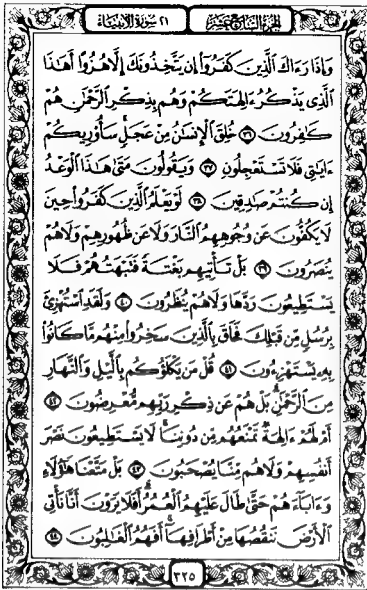 الجزء السابع عشر ٢١ سورة الأنبياء
وَإِذَا رَءَاكَ ٱلَّذِينَ كَفَرُوٓا۟ إِن يَتَّخِذُونَكَ إِلَّا هُزُوًا أَهَٰذَا
ٱلَّذِى يَذْكُرُ ءَالِهَتَكُمْ وَهُم بِذِكْرِ ٱلرَّحْمَٰنِ هُمْ
كَٰفِرُونَ ٣٦ خُلِقَ ٱلْإِنسَٰنُ مِنْ عَجَلٍ سَأُو۟رِيكُمْ
ءَايَٰتِى فَلَا تَسْتَعْجِلُونِ ٣٧ وَيَقُولُونَ مَتَىٰ هَٰذَا ٱلْوَعْدُ
إِن كُنتُمْ صَٰدِقِينَ ٣٨ لَوْ يَعْلَمُ ٱلَّذِينَ كَفَرُوا۟ حِينَ
لَا يَكُفُّونَ عَن وُجُوهِهِمُ ٱلنَّارَ وَلَا عَن ظُهُورِهِمْ وَلَا هُمْ
يُنصَرُونَ ٣٩ بَلْ تَأْتِيهِم بَغْتَةً فَتَبْهَتُهُمْ فَلَا
يَسْتَطِيعُونَ رَدَّهَا وَلَا هُمْ يُنظَرُونَ ٤٠ وَلَقَدِ ٱسْتُهْزِئَ
بِرُسُلٍ مِّن قَبْلِكَ فَحَاقَ بِٱلَّذِينَ سَخِرُوا۟ مِنْهُم مَّا كَانُوا۟
بِهِۦ يَسْتَهْزِءُونَ ٤١ قُلْ مَن يَكْلَؤُكُم بِٱلَّيْلِ وَٱلنَّهَارِ
مِنَ ٱلرَّحْمَٰنِ بَلْ هُمْ عَن ذِكْرِ رَبِّهِم مُّعْرِضُونَ ٤٢
أَمْ لَهُمْ ءَالِهَةٌ تَمْنَعُهُم مِّن دُونِنَا لَا يَسْتَطِيعُونَ نَصْرَ
أَنفُسِهِمْ وَلَا هُم مِّنَّا يُصْحَبُونَ ٤٣ بَلْ مَتَّعْنَا هَٰٓؤُلَآءِ
وَءَابَآءَهُمْ حَتَّىٰ طَالَ عَلَيْهِمُ ٱلْعُمُرُ أَفَلَا يَرَوْنَ أَنَّا نَأْتِى
ٱلْأَرْضَ نَنقُصُهَا مِنْ أَطْرَافِهَآ أَفَهُمُ ٱلْغَٰلِبُونَ ٤٤
٣٢٥